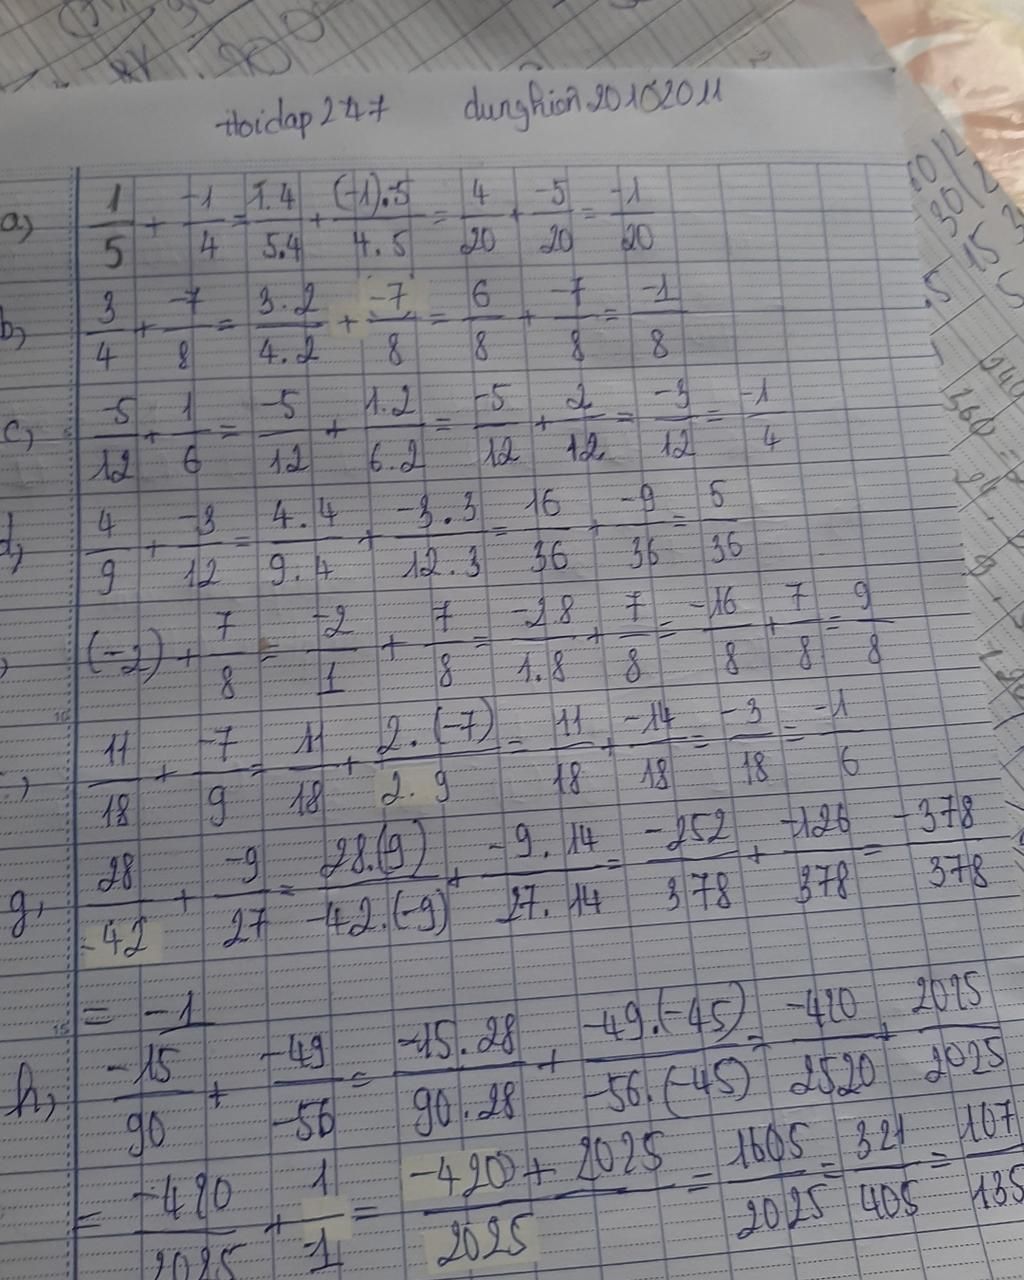 Hoidap247 dunghien20102011
a, 1/5 + -1/4 = 1.4/5.4 + (-1).5/4.5 = 4/20 + -5/20 = -1/20
b, 3/4 + -7/8 = 3.2/4.2 + -7/8 = 6/8 + -7/8 = -1/8
c, -5/12 + 1/6 = -5/12 + 1.2/6.2 = -5/12 + 2/12 = -3/12 = -1/4
d, 4/9 + -3/12 = 4.4/9.4 + -3.3/12.3 = 16/36 + -9/36 = 5/36
, (-2) + 7/8 = -2/1 + 7/8 = -2.8/1.8 + 7/8 = -16/8 + 7/8 = 9/8
, 11/18 + -7/9 = 11/18 + 2.(-7)/2.9 = 11/18 + -14/18 = -3/18 = -1/6
g, 28/-42 + -9/27 = 28.(9)/-42.(-9) + -9.14/27.14 = -252/378 + -126/378 = -378/378
= -1
h, -15/90 + -49/-56 = -15.28/90.28 + -49.(-45)/-56.(-45) = -420/2520 + 2025/2025
= -420/2025 + 1/1 = -420 + 2025/2025 = 1605/2025 = 321/405 = 107/135